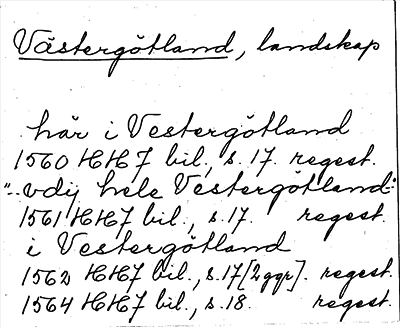 Västergötland, landskap
här i Vestergötland
1560 HH7 bil., s. 17. regest.
"..vdij hele Vestergötland:"
1561 HH7 bil., s. 17. regest.
i Vestergötland
1562 HH7 bil., s. 17 [2 ggr]. regest.
1564 HH7 bil., s. 18. regest.